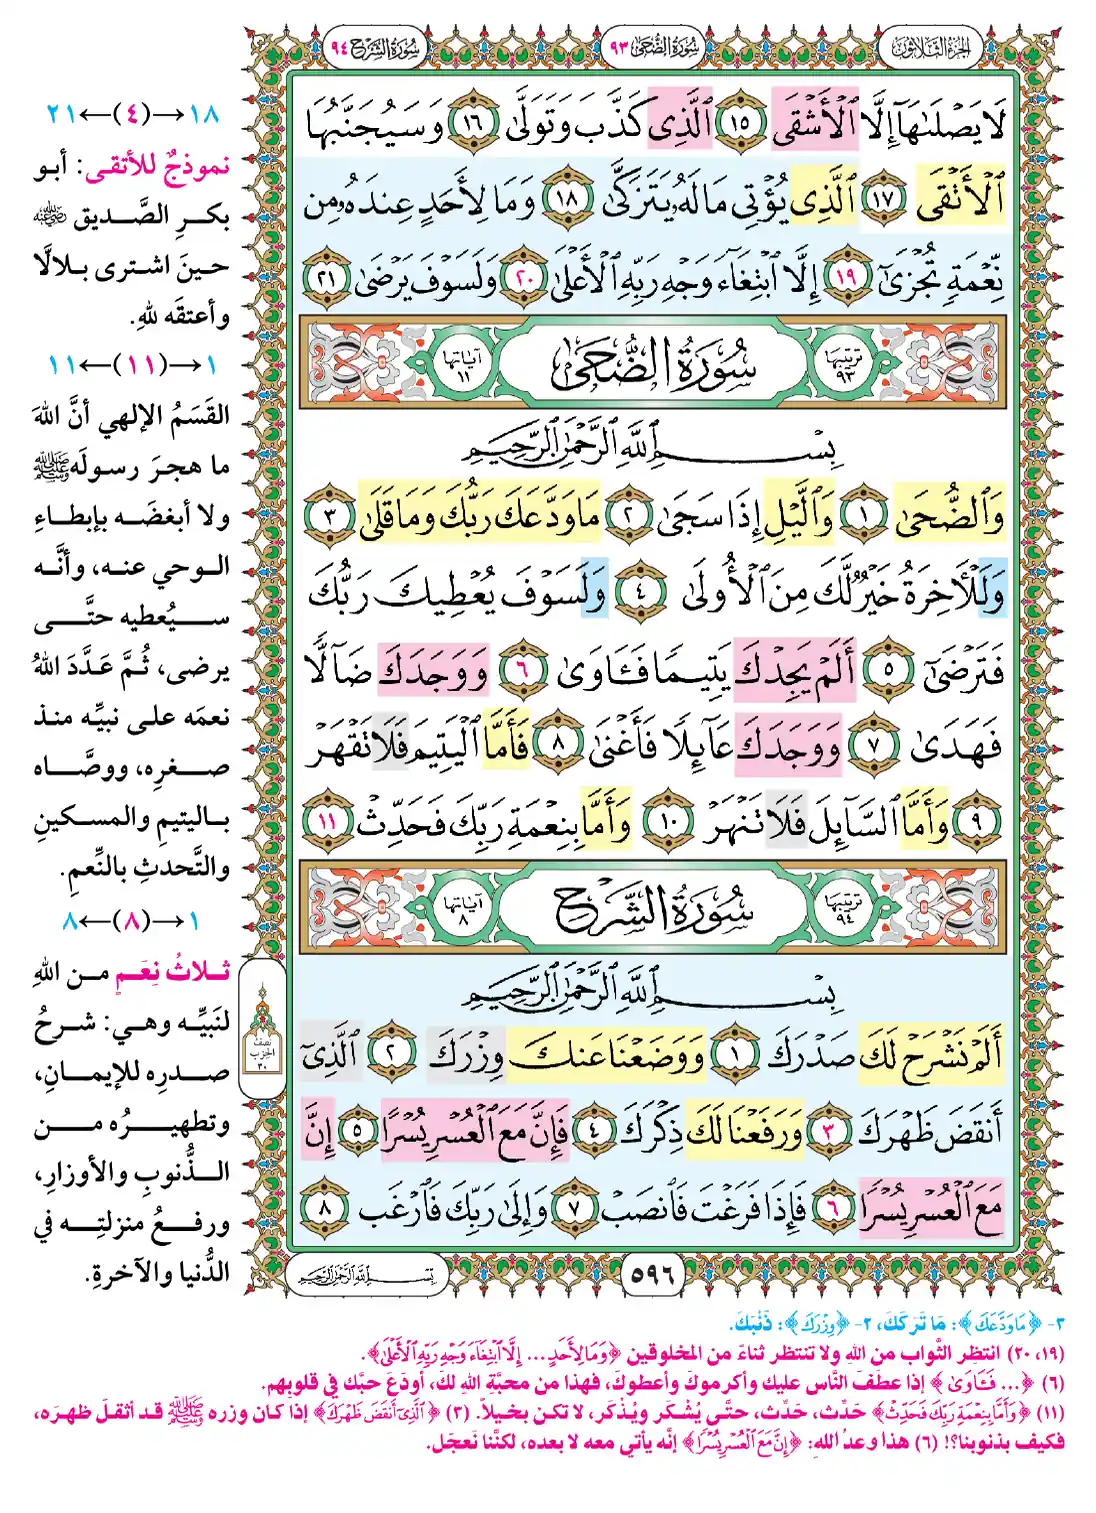 الجزء الثلاثون
سورة الضحى ٩٣
سورة الشرح ٩٤
لَا يَصْلَىٰهَآ إِلَّا ٱلْأَشْقَى ١٥ ٱلَّذِى كَذَّبَ وَتَوَلَّىٰ ١٦ وَسَيُجَنَّبُهَا
ٱلْأَتْقَى ١٧ ٱلَّذِى يُؤْتِى مَالَهُۥ يَتَزَكَّىٰ ١٨ وَمَا لِأَحَدٍ عِندَهُۥ مِن
نِّعْمَةٍ تُجْزَىٰٓ ١٩ إِلَّا ٱبْتِغَآءَ وَجْهِ رَبِّهِ ٱلْأَعْلَىٰ ٢٠ وَلَسَوْفَ يَرْضَىٰ ٢١
ترتيبها ٩٣ سُورَةُ الضُّحَىٰ آياتها ١١
بِسْمِ ٱللَّهِ ٱلرَّحْمَٰنِ ٱلرَّحِيمِ
وَٱلضُّحَىٰ ١ وَٱلَّيْلِ إِذَا سَجَىٰ ٢ مَا وَدَّعَكَ رَبُّكَ وَمَا قَلَىٰ ٣
وَلَلْءَاخِرَةُ خَيْرٌ لَّكَ مِنَ ٱلْأُولَىٰ ٤ وَلَسَوْفَ يُعْطِيكَ رَبُّكَ
فَتَرْضَىٰٓ ٥ أَلَمْ يَجِدْكَ يَتِيمًا فَـَٔاوَىٰ ٦ وَوَجَدَكَ ضَآلًّا
فَهَدَىٰ ٧ وَوَجَدَكَ عَآئِلًا فَأَغْنَىٰ ٨ فَأَمَّا ٱلْيَتِيمَ فَلَا تَقْهَرْ
٩ وَأَمَّا ٱلسَّآئِلَ فَلَا تَنْهَرْ ١٠ وَأَمَّا بِنِعْمَةِ رَبِّكَ فَحَدِّثْ ١١
ترتيبها ٩٤ سُورَةُ الشَّرْحِ آياتها ٨
بِسْمِ ٱللَّهِ ٱلرَّحْمَٰنِ ٱلرَّحِيمِ
أَلَمْ نَشْرَحْ لَكَ صَدْرَكَ ١ وَوَضَعْنَا عَنكَ وِزْرَكَ ٢ ٱلَّذِىٓ
أَنقَضَ ظَهْرَكَ ٣ وَرَفَعْنَا لَكَ ذِكْرَكَ ٤ فَإِنَّ مَعَ ٱلْعُسْرِ يُسْرًا ٥ إِنَّ
مَعَ ٱلْعُسْرِ يُسْرًا ٦ فَإِذَا فَرَغْتَ فَٱنصَبْ ٧ وَإِلَىٰ رَبِّكَ فَٱرْغَب ٨
٥٩٦
بسم الله الرحمن الرحيم
١٨→(٤)←٢١
نموذجٌ للأتقى: أبو
بكرِ الصَّديق رضي الله عنه
حينَ اشترى بلالًا
وأعتقَه للهِ.
١→(١١)←١١
القَسَمُ الإلهي أنَّ اللهَ
ما هجرَ رسولَه ﷺ
ولا أبغضَه بإبطاءِ
الوحي عنه، وأنَّه
سيُعطيه حتَّى
يرضى، ثُمَّ عَدَّدَ اللهُ
نعمَه على نبيِّه منذ
صغرِه، ووصَّاه
باليتيمِ والمسكينِ
والتَّحدثِ بالنِّعمِ.
١→(٨)←٨
ثلاثُ نِعَمٍ من اللهِ
لنَبيِّه وهي: شرحُ
صدرِه للإيمانِ،
وتطهيرُه من
الذُّنوبِ والأوزارِ،
ورفعُ منزلتِه في
الدُّنيا والآخرةِ.
نصف الحزب ٣٠
٣- ﴿مَا وَدَّعَكَ﴾: مَا تَرَكَكَ، ٢- ﴿وِزْرَكَ﴾: ذَنْبَكَ.
(١٩، ٢٠) انتظِر الثَّواب من اللهِ ولا تنتظر ثناءً من المخلوقين ﴿وَمَا لِأَحَدٍ... إِلَّا ٱبْتِغَآءَ وَجْهِ رَبِّهِ ٱلْأَعْلَىٰ﴾.
(٦) ﴿... فَـَٔاوَىٰ﴾ إذا عطَفَ النَّاس عليك وأكرموكَ وأعطوكَ، فهذا من محبَّةِ اللهِ لكَ، أودَعَ حبَّك في قلوبِهم.
(١١) ﴿وَأَمَّا بِنِعْمَةِ رَبِّكَ فَحَدِّثْ﴾ حَدِّث، حَدِّث، حتَّى يُشْكَر ويُذْكَر، لا تكن بخيلاً. (٣) ﴿ٱلَّذِىٓ أَنقَضَ ظَهْرَكَ﴾ إذا كان وزره ﷺ قد أثقلَ ظهرَه،
فكيف بذنوبنا؟! (٦) هذا وعدُ اللهِ: ﴿إِنَّ مَعَ ٱلْعُسْرِ يُسْرًا﴾ إنَّه يأتي معه لا بعده، لكنَّنا نَعجَل.